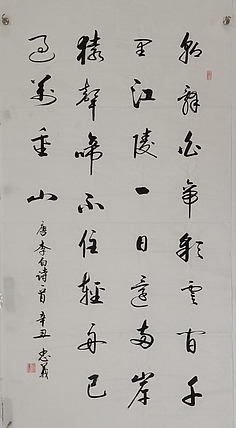 朝辭白帝彩云间千
里江陵一日還两岸
猿聲啼不住輕舟已
过萬重山
唐李白诗一首 辛丑 忠義